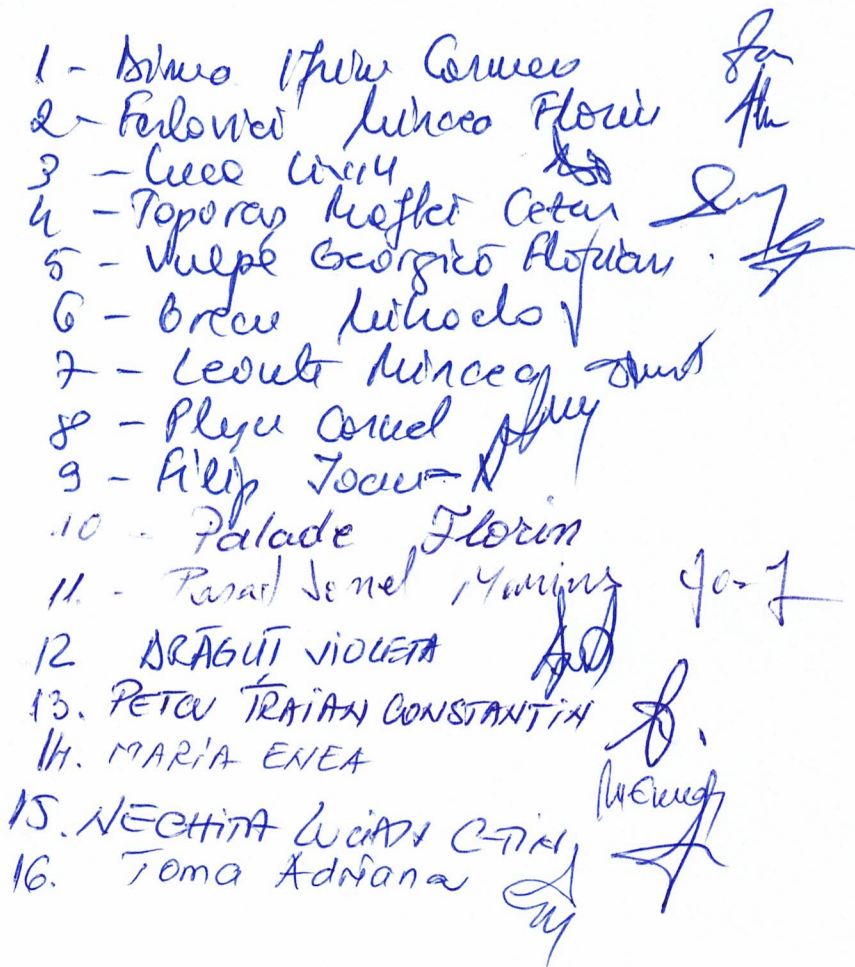 1 - Dima Carmen
2 - Mircea Florin
3 - Cuca Liviu
4 - Toporaș Cezar
5 - Vulpe Georgică Florian
6 - Grecu Mihaela
7 - Leonte Mircea
8 - Cornel
9 - Filip Ioan
10 - Palade Florin
11. - Ionel Marius
12 DRĂGUȚ VIOLETA
13. PETCU TRAIAN CONSTANTIN
14. MARIA ENEA
15. NECHITA LUCIAN C-TIN
16. Toma Adriana